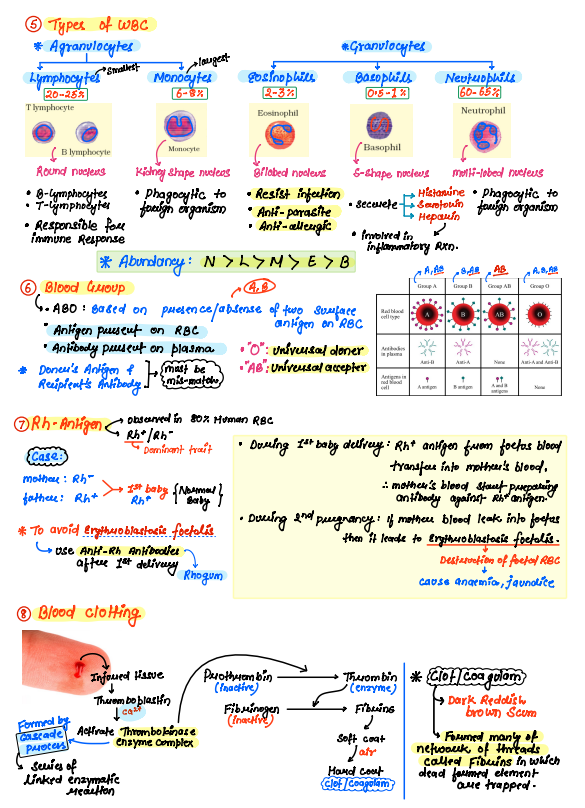 ⑤ Types of WBC
* Agranulocytes
*Granulocytes
smallest
largest
Lymphocytes
Monocytes
Eosinophils
Basophils
Neutrophils
20-25%
6-8%
2-3%
0.5-1%
60-65%
T lymphocyte
B lymphocyte
Monocyte
Eosinophil
Basophil
Neutrophil
Round nucleus
Kidney shape nucleus
Bilobed nucleus
S-shape nucleus
multi-lobed nucleus
• B-Lymphocytes
• T-Lymphocytes
• Responsible for
immune Response
• Phagocytic to
foreign organism
• Resist infection
• Anti-parasite
• Anti-allergic
• secrete
Histamine
Serotonin
Heparin
• involved in
inflammatory Rxn.
• Phagocytic to
foreign organism
* Abundancy: N > L > M > E > B
⑥ Blood Group
A, B
• ABO : Based on presence/absense of two surface
antigen on RBC
• Antigen present on RBC
• Antibody present on plasma
* Doner's Antigen &
Recipient's Antibody
must be
mis-match
• "O": universal doner
• "AB": universal accepter
A, AB
B, AB
AB
A, B, AB
Group A
Group B
Group AB
Group O
Red blood
cell type
A
B
AB
O
Antibodies
in plasma
Anti-B
Anti-A
None
Anti-A and Anti-B
Antigens in
red blood
cell
A antigen
B antigen
A and B
antigens
None
⑦ Rh-Antigen
observed in 80% Human RBC
Rh⁺/Rh⁻
Dominant trait
Case:
mother : Rh⁻
father : Rh⁺
1st baby
Rh⁺
{Normal
Baby}
* To avoid Erythroblastosis foetalis
use Anti-Rh Antibodies
after 1st delivery
Rhogum
• During 1st baby delivery: Rh⁺ antigen from foetus blood
transfer into mother's blood,
∴ mother's blood start preparing
antibody against Rh⁺ antigen.
• During 2nd pregnancy: if mother blood leak into foetus
then it leads to Erythroblastosis foetalis.
Destruction of foetal RBC
cause anaemia, jaundice
⑧ Blood clotting
Injured tissue
Thromboplastin
Ca²⁺
Activate Thrombokinase
enzyme complex
Formed by
cascade
process
series of
linked enzymatic
reaction
Prothrombin
(inactive)
Thrombin
(enzyme)
Fibrinogen
(inactive)
Fibrins
Soft coat
air
Hard coat
Clot/Coagulam
* Clot/Coagulam
Dark Reddish
brown Scum
Formed many of
network of threads
called Fibrins in which
dead formed element
are trapped.